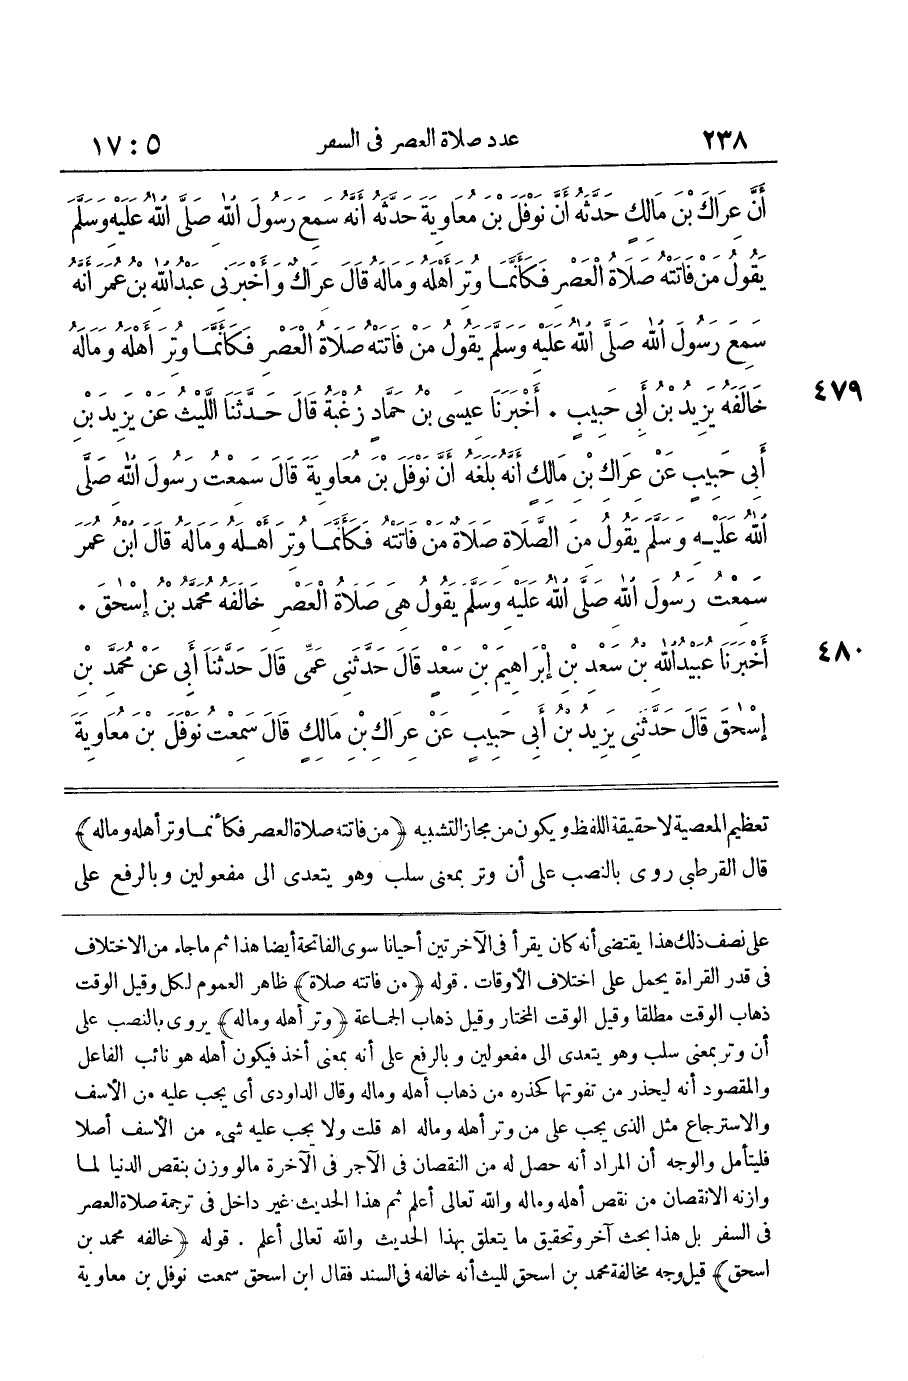 ٢٣٨ عدد صلاة العصر فى السفر ٥ : ١٧
أَنَّ عِرَاكَ بْنَ مَالِكٍ حَدَّثَهُ أَنَّ نَوْفَلَ بْنَ مُعَاوِيَةَ حَدَّثَهُ أَنَّهُ سَمِعَ رَسُولَ اللهِ صَلَّى اللهُ عَلَيْهِ وَسَلَّمَ
يَقُولُ مَنْ فَاتَتْهُ صَلَاةُ الْعَصْرِ فَكَأَنَّمَا وُتِرَ أَهْلَهُ وَمَالَهُ قَالَ عِرَاكٌ وَأَخْبَرَنِى عَبْدُ اللهِ بْنُ عُمَرَ أَنَّهُ
سَمِعَ رَسُولَ اللهِ صَلَّى اللهُ عَلَيْهِ وَسَلَّمَ يَقُولُ مَنْ فَاتَتْهُ صَلَاةُ الْعَصْرِ فَكَأَنَّمَا وُتِرَ أَهْلَهُ وَمَالَهُ
٤٧٩ خَالَفَهُ يَزِيدُ بْنُ أَبِى حَبِيبٍ . أَخْبَرَنَا عِيسَى بْنُ حَمَّادٍ زُغْبَةُ قَالَ حَدَّثَنَا اللَّيْثُ عَنْ يَزِيدَ بْنِ
أَبِى حَبِيبٍ عَنْ عِرَاكِ بْنِ مَالِكٍ أَنَّهُ بَلَغَهُ أَنَّ نَوْفَلَ بْنَ مُعَاوِيَةَ قَالَ سَمِعْتُ رَسُولَ اللهِ صَلَّى
اللهُ عَلَيْهِ وَسَلَّمَ يَقُولُ مِنَ الصَّلَاةِ صَلَاةٌ مَنْ فَاتَتْهُ فَكَأَنَّمَا وُتِرَ أَهْلَهُ وَمَالَهُ قَالَ ابْنُ عُمَرَ
سَمِعْتُ رَسُولَ اللهِ صَلَّى اللهُ عَلَيْهِ وَسَلَّمَ يَقُولُ هِىَ صَلَاةُ الْعَصْرِ خَالَفَهُ مُحَمَّدُ بْنُ إِسْحٰقَ .
٤٨٠ أَخْبَرَنَا عُبَيْدُ اللهِ بْنُ سَعْدِ بْنِ إِبْرَاهِيمَ بْنِ سَعْدٍ قَالَ حَدَّثَنِى عَمِّى قَالَ حَدَّثَنَا أَبِى عَنْ مُحَمَّدِ بْنِ
إِسْحٰقَ قَالَ حَدَّثَنِى يَزِيدُ بْنُ أَبِى حَبِيبٍ عَنْ عِرَاكِ بْنِ مَالِكٍ قَالَ سَمِعْتُ نَوْفَلَ بْنَ مُعَاوِيَةَ
تعظيم المعصية لا حقيقة اللفظ ويكون من مجاز التشبيه ﴿من فاتته صلاة العصر فكأنما وتر أهله وماله﴾
قال القرطبى روى بالنصب على أن وتر بمعنى سلب وهو يتعدى الى مفعولين وبالرفع على
على نصف ذلك هذا يقتضى أنه كان يقرأ فى الآخرتين أحيانا سوى الفاتحة أيضا هذا ثم ماجاء من الاختلاف
فى قدر القراءة يحمل على اختلاف الأوقات . قوله ﴿من فاتته صلاة﴾ ظاهر العموم لكل وقيل الوقت
ذهاب الوقت مطلقا وقيل الوقت المختار وقيل ذهاب الجماعة ﴿وتر أهله وماله﴾ يروى بالنصب على
أن وتر بمعنى سلب وهو يتعدى الى مفعولين وبالرفع على أنه بمعنى أخذ فيكون أهله هو نائب الفاعل
والمقصود أنه ليحذر من تفوتها كحذره من ذهاب أهله وماله وقال الداودى أى يجب عليه من الأسف
والاسترجاع مثل الذى يجب على من وتر أهله وماله اه قلت ولا يجب عليه شىء من الأسف أصلا
فليتأمل والوجه أن المراد أنه حصل له من النقصان فى الآجر فى الآخرة مالو وزن بنقص الدنيا لما
وازنه الانقصان من نقص أهله وماله والله تعالى أعلم ثم هذا الحديث غير داخل فى ترجمة صلاة العصر
فى السفر بل هذا بحث آخر وتحقيق ما يتعلق بهذا الحديث والله تعالى أعلم . قوله ﴿خالفه محمد بن
اسحق﴾ قيل وجه مخالفة محمد بن اسحق لليث أنه خالفه فى السند فقال ابن اسحق سمعت نوفل بن معاوية